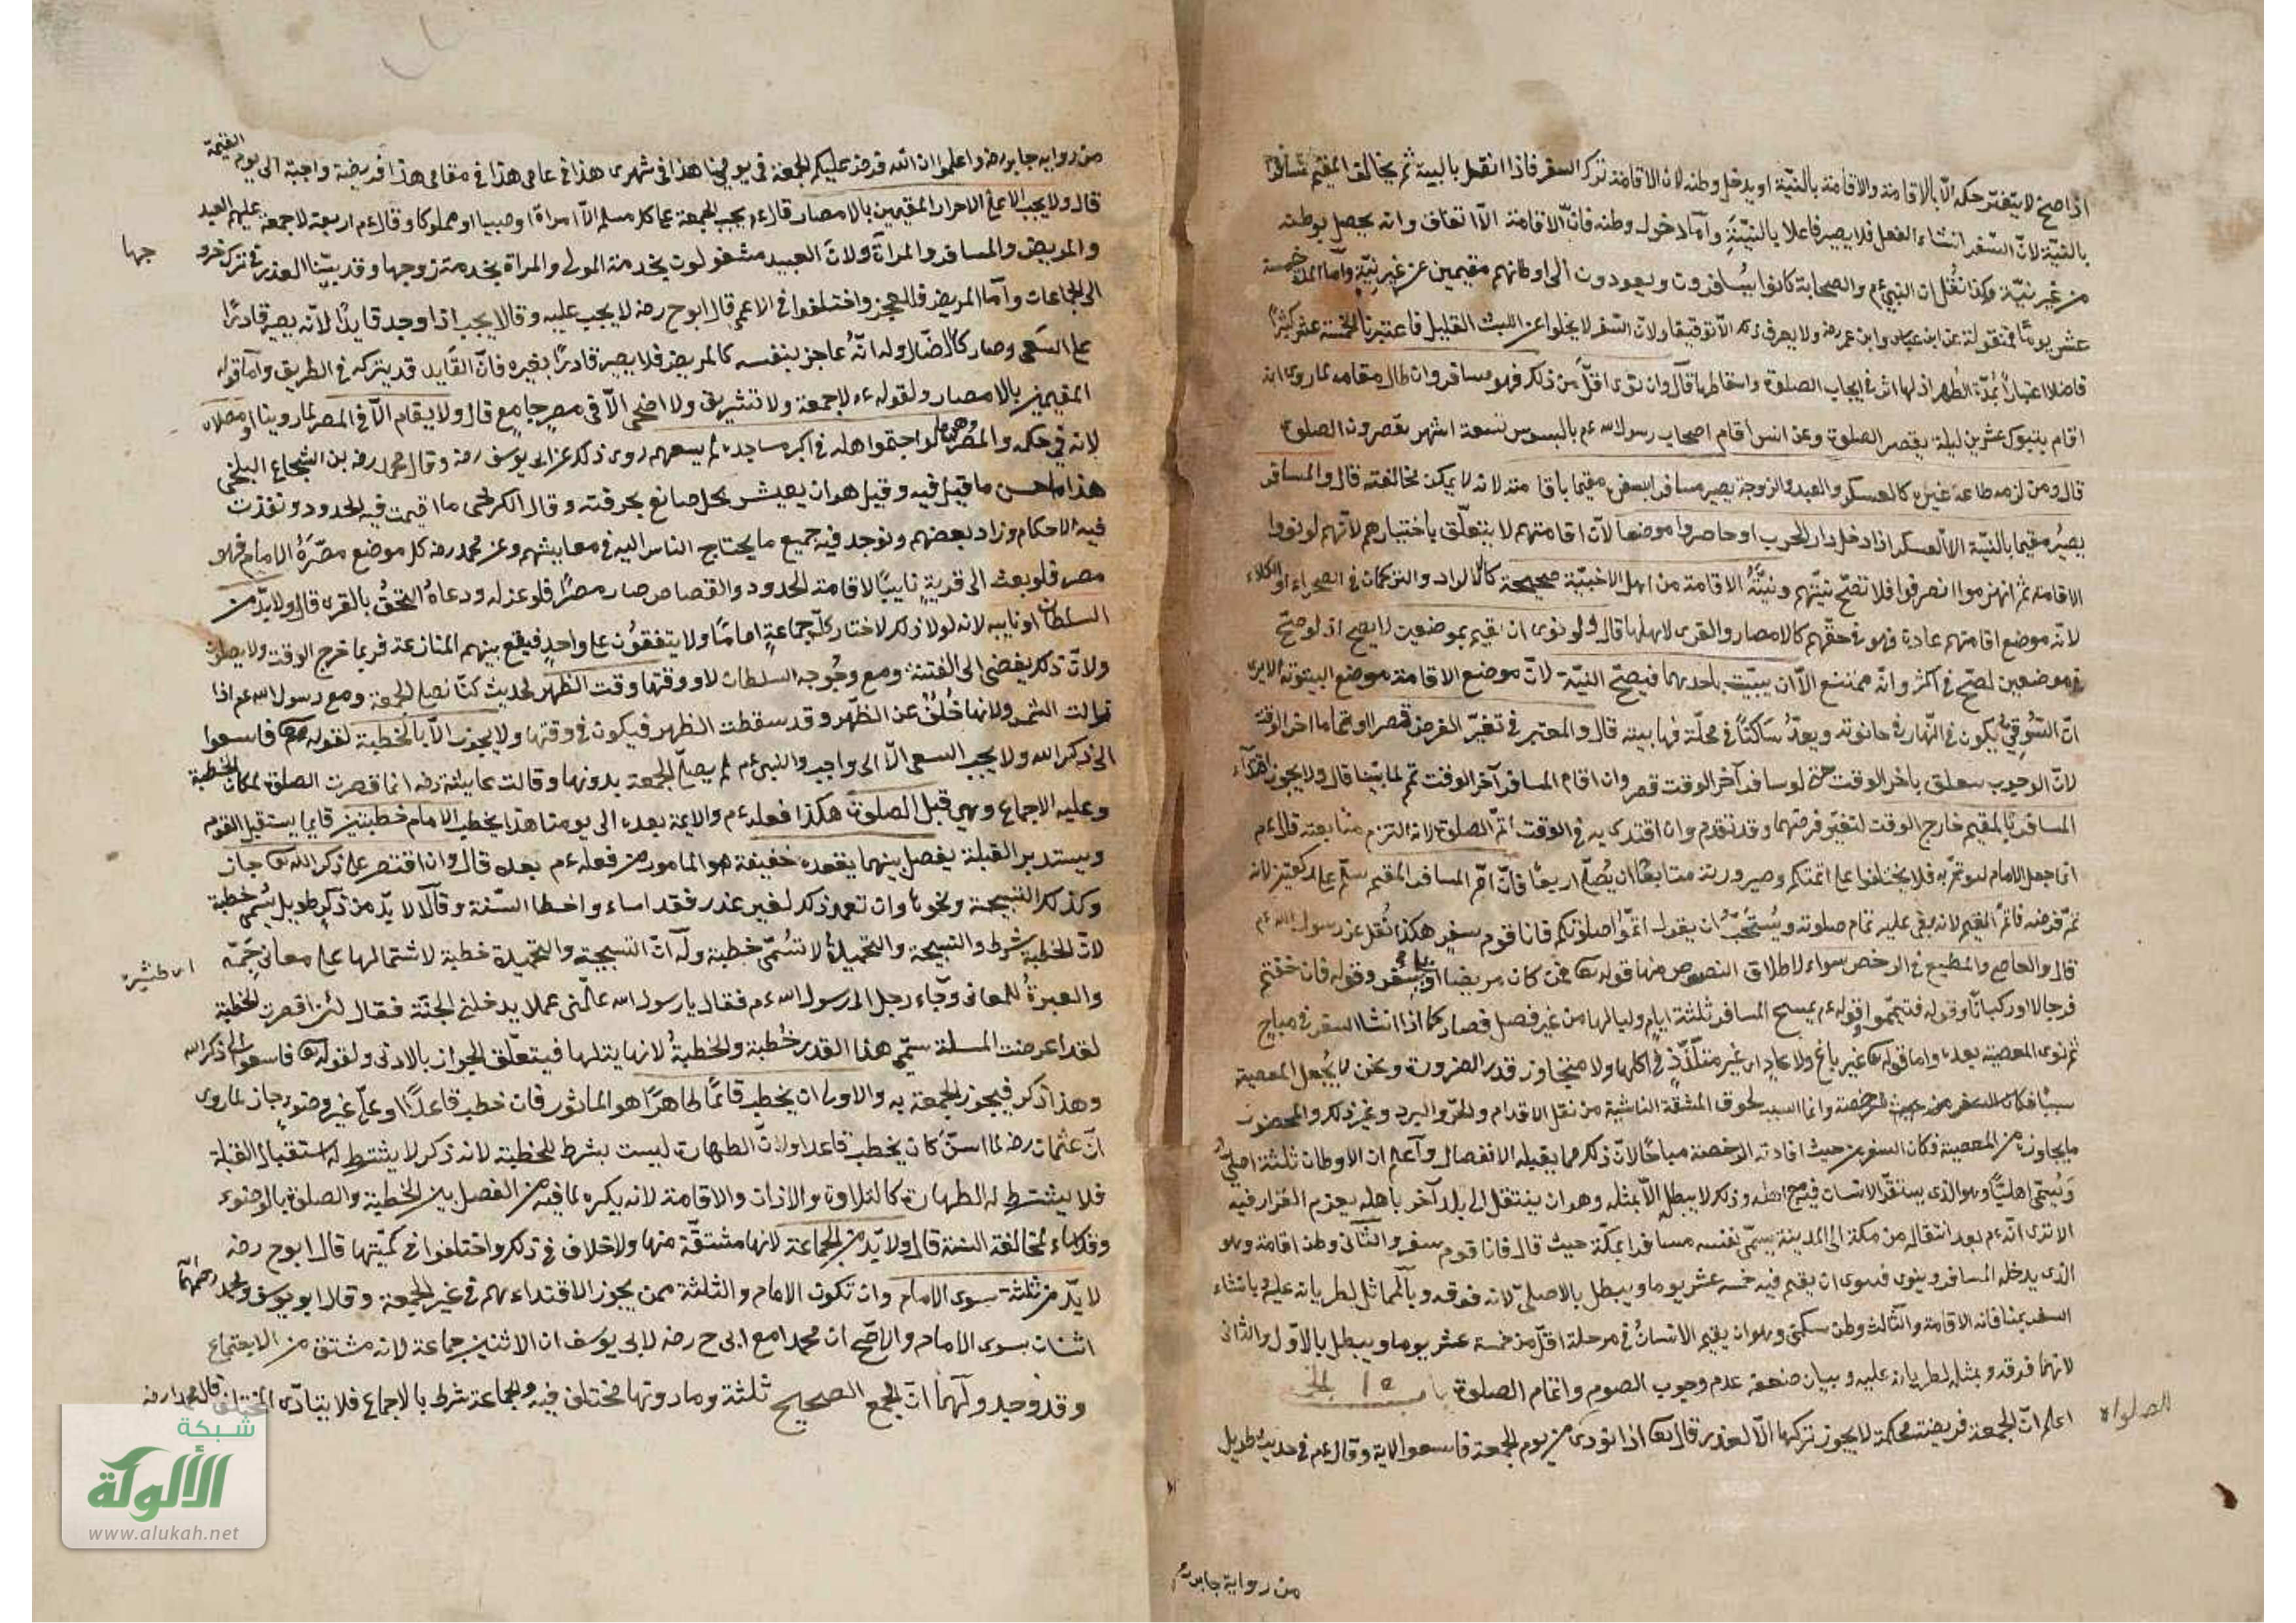 اذا صح لا يتغير حكمه الا بالاقامة والاقامة بالنيّة او يدخل وطنه لان الاقامة ترك السفر فاذا اتصل بالنية تم بخالف المقيم
بالنيّة لانّ السّفر انشاء الفعل فلا يصير فاعلا بالنيّة وامّا دخول وطنه فانّ الاقامة وانه يحصل بوطنه
من غير نيّة وكذا نُقل ان النبي ءم والصحابة كانوا يسافرون ويعودون الى اوطانهم مقيمين عن غير نيّة وامّا المدّة خمسة
عشر يوما فمنقولة عن ابن عباس وابن عمر رضه ولا يعرف ذلك الّا توقيفا ولانّ السّفر لا يخلوا عن اللبث القليل فاعتبرنا الخمسة عشر كثيرًا
فاصلا اعتبارًا بمدّة الطّهر اذ لها اثر في ايجاب الصلوة واسقاطها قال وان نوى اقلّ من ذلك فهو مسافر وان طال مقامه لما روى انه
اقام بتبوك عشرين ليلة يقصر الصلوة وعن انس اقام اصحاب رسول الله ءم بالسوس تسعة اشهر يقصرون الصلوة
قال ومن لزمه طاعة غيره كالعسكر والعبد والزوجة يصير مسافرا بسفره مقيما باقامته لانه لا يمكنه مخالفته قال والمسافر
يصيرُ مقيما بالنيّة الا العسكر اذا دخل دار الحرب او حاصروا موضعا لانّ اقامتهم لا يتعلّق باختيارهم لانّهم لو نووا
الاقامة ثم انهزموا انصرفوا فلا تصحّ نيّتهم ونيّةُ الاقامة من اهل الاخبيّة صحيحة كالاكراد والتركمان في الصحراء او الكلاء
لانّه موضع اقامتهم عادة فهو في حقّهم كالامصار والقرى لاهلها قال ولو نوى ان يقيم بموضعين لا يصح اذ لو صحّ
في موضعين لصحّ في اكثر وانّه ممتنع الّا ان يبيت باحدهما فيصحّ النيّة لانّ موضع الاقامة موضع البيتوتة الا يرى
انّ السّوقيّ يكون في النّهار في حانوته ويعدّ ساكنًا في محلّة فيها بيته قال والمعتبر في تغيّر الفرض قصرا او تماما اخر الوقت
لانّ الوجوب يتعلق باخر الوقت حتى لو سافر آخر الوقت قصر وان اقام المسافر آخر الوقت تم لما بيّنا قال ولا يجوز اقتداء
المسافر بالمقيم خارج الوقت لتغيّر فرضهما وقد تقدم وان اقتدى به في الوقت اتمّ الصلوة لانه التزم متابعته قال ءم
انما جعل الامام ليؤتمّ به فلا يختلفوا على ائمتكم وصيرورته متابعًا ان يُصلّي اربعًا فانّ امّ المسافر المقيم سلّم على ركعتين لانه
تمّ فرضه فاتمّ المقيم لانه بقي عليه تمام صلوته ويُستحبّ ان يقول اتمّوا صلوتكم فانا قوم سفر هكذا نُقل عن رسول الله ءم
قال والعاصي والمطيع في الرخص سواء لاطلاق النصوص منها قوله تعا فمن كان مريضا او على سفر وقوله فان خفتم
فرجالا او ركبانًا وقوله فتيمّموا وقوله ءم يمسح المسافر ثلثة ايام ولياليها من غير فصل فصار كما اذا انشا السفر في مباح
ثم نوى المعصية بعده واما قوله تعا غير باغ ولا عاد اى غير متلذّذ في اكلها ولا متجاوز قدر الضرورة ونحن لا يُجعل المعصية
سببا فكان السفر من حيث الرخصة وانما السبب لحوق المشقة الناشية من نقل الاقدام والحرّ والبرد وغير ذلك والمحظور
ما يجاوره من المعصية فكان السفر من حيث افادته الرخصة مباحًا لانّ ذلك مما يقبله الانفصال واعلم ان الاوطان ثلثة اصلي
ويُسمّى اهليّا وهو الذى يستقرّ الانسان فيه مع اهله وذلك لا يبطل الّا بمثله وهو ان ينتقل الى بلد آخر باهله بعزم القرار فيه
الا ترى انّه ءم بعد انتقاله من مكة الى المدينة يسمّى نفسه مسافرا بمكّة حيث قال فانا قوم سفر والثّاني وطن اقامة وهو
الذى يدخله المسافر وينوى فينوى ان يقيم فيه خمسة عشر يوما ويبطل بالاصليّ لانه فوقه وبالمماثل لطريانه عليه وبانشاء
السفر لمنافاته الاقامة والثّالث وطن سكنى وهو ان يقيم الانسان في مرحلة اقلّ من خمسة عشر يوما ويبطل بالاوّل والثاني
لانهما فوقه وبمثله لطريانه عليه وبيان ضعفه عدم وجوب الصوم واتمام الصلوة
الصلواه
اعلم انّ الجمعة فريضة محكمة لا يجوز تركها الّا لعذر قال تعا اذا نودى من يوم الجمعة فاسعوا الاية وقال ءم في حديث طويل
من رواية جابر رضه
من رواية جابر رضه واعلموا ان الله فرض عليكم الجمعة في يومي هذا في شهرى هذا في عامى هذا في مقامى هذا فريضة واجبة الى يوم القيمة
قال ولا يجب الا على الاحرار المقيمين بالامصار قال ءم يجب الجمعة على كل مسلم الّا امراة او صبيا او مملوكا وقال ءم اربعة لا جمعة عليهم العبد
والمريض والمسافر والمراة ولانّ العبيد مشغولون بخدمة المولى والمراة بخدمة زوجها وقد بيّنا العذر في ترك خروجها
الى الجماعات وامّا المريض فللعجز واختلفوا في الاعمى قال ابو ح رضه لا يجب عليه وقالا يجب اذا وجد قايدًا لانّه يصير قادرًا
على السّعى وصار كالضّال وله انّه عاجز بنفسه كالمريض فلا يصير قادرًا بغيره فانّ القايد قد يتركه في الطريق وامّا قوله
المقيمين بالامصار ولقوله ءم لا جمعة ولا تشريق ولا اضحى الّا في مصر جامع قال ولا يقام الّا في المصر لما روينا او مصلّاه
لانه في حكمه والمصر هو ما لو اجتمعوا اهله في اكبر مساجده لم يسعهم روى ذلك عن ابي يوسف رضه وقال محمد رضه بن الشجاع البلخي
هذا احسن ما قيل فيه وقيل هو ان يعيش كل صانع بحرفته وقال الكرخى ما اقيمت فيه الحدود ونفذت
فيه الاحكام وزاد بعضهم ونوجد فيه جميع ما يحتاج الناس اليه في معايشهم وعن محمد رضه كل موضع مصّرهُ الامام فهو
مصر فلو بعث الى قرية نايبًا لاقامة الحدود والقصاص صار مصرًا فلو عزله ودعاهُ التحقُ بالقرى قال ولا بدّ من
السلطان او نايبه لانه لولا ذلك لاختار كلّ جماعةٍ امامًا ولا يتفقون على واحدٍ فيقع بينهم المنازعة فربما خرج الوقت ولا يصلون
ولانّ ذلك يفضى الى الفتنة ومع وجود السلطان لا ووقتها وقت الظّهر لحديث كنّا نصلى الجمعة مع رسول الله ءم اذا
زالت الشمس ولانها خُلفٌ عن الظّهر وقد سقطت الظهر فيكون في وقتها ولا يجوز الّا بالخطبة لقوله تعا فاسعوا
الى ذكر الله ولا يجب السعى الّا الى واجب والنبي ءم لم يصلّ الجمعة بدونها وقالت عايشة رضه انما قصرت الصلوة لمكان الخطبة
وعليه الاجماع وهي قبل الصلوة هكذا فعله ءم والايمة بعده الى يومنا هذا يخطب الامام خطبتين قايما يستقبل القوم
ويستدبر القبلة يفصل بينهما بقعدة خفيفة هو المامور من فعله ءم بعده قال وان اقتصر على ذكر الله تعا جاز
وكذلك التسبيحة ونحوها وان تعمد ذلك لغير عذر فقد اساء واخطا السّنة وقالا لا بدّ من ذكر طويل يُسمّى خطبة
لانّ الخطبة شرط والتسبيحة والتحميدة لا تُسمّى خطبة وله انّ التسبيحة والتحميدة خطبة لاشتمالها على معانى جَمّة
والعبرةُ للمعانى وجّاء رجل الى رسول الله ءم فقال يا رسول الله علّمني عملا يدخلنى الجنّة فقال لئن اقصرت الخطبة
لقد اعرضت المسئلة سمّى هذا القدر خُطبة والخطبةُ لانها يتلها فيتعلّق الجواز بالادنى ولقوله تعا فاسعوا الى ذكر الله
وهذا ذكر فيجوز الجمعة به والاولى ان يخطب قائمًا طاهرًا هو الماثور فان خطب قاعدًا او على غير وضوءٍ جاز لما روى
انّ عثمان رضه لما اسنّ كان يخطب قاعدا ولانّ الطهارة ليست بشرط للخطبة لانه ذكر لا يشترط له استقبال القبلة
فلا يشترط له الطهارة كالتلاوة والاذان والاقامة لانه يكره لما فيه من الفصل بين الخطبة والصلوة بالوضوء
لمخالفة السنة قال ولا بدّ من الجماعة لانها مشتقّة منها ولا خلاف في ذلك واختلفوا في كميّتها قال ابو ح رضه
لا بدّ من ثلثة سوى الامام وان تكون الامام والثلثة ممن يجوز الاقتداء بهم في غير الجمعة وقال ابو يوسف ومحمد رحمهما
اثنان سوى الامام والاصّح ان محمدا مع ابى ح رضه لابى يوسف ان الاثنين جماعة لانه مشتق من الاجتماع
وقد وجد ولهما انّ الجمع الصحيح ثلثة وما دونها مختلف فيه والجماعة شرط بالاجماع فلا يتادّى بالمختلف قال محمد رضه
شبكة
الألوكة
www.alukah.net